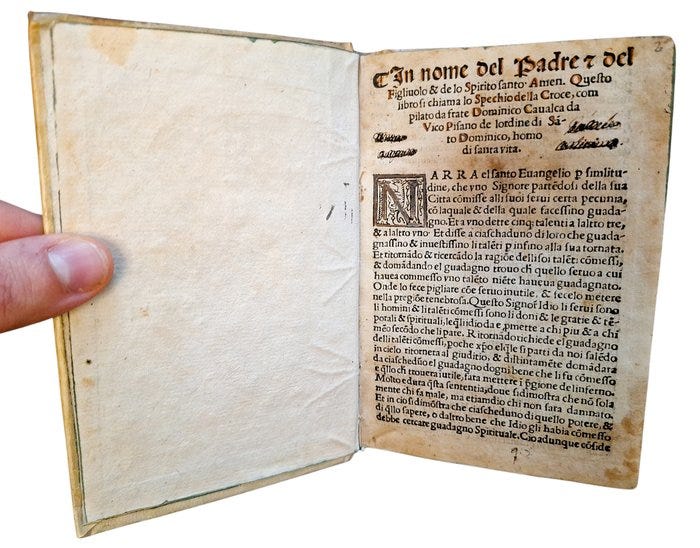 In nome del Padre ⁊ del
Figliuolo & de lo Spirito santo. Amen. Questo
libro si chiama lo Spechio della Croce, com
pilato da frate Dominico Caualca da
Vico Pisano de lordine di Sã-
to Dominico, homo
di santa vita.
NARRA el santo Euangelio p similitu-
dine, che vno Signore partẽdosi della sua
Citta cõmisse alli suoi serui certa pecunia,
cõ laquale & della quale facessino guada-
gno. Et a vno dette cinq; talenti a laltro tre,
& a laltro vno. Et disse a ciaschaduno di loro che guada-
gnassino & inuestissino li talẽti p insino alla sua tornata.
Et ritornãdo & ricercãdo la ragiõe delli soi talẽti cõmessi,
& domãdando el guadagno trouo ch̃ quello seruo a cui
hauea commesso vno talẽto niẽte haueua guadagnato.
Onde lo fece pigliare cõe seruo inutile, & fecelo mettere
nella pregiõe tenebrosa. Questo Signor Idio li serui sono
li homini & li talẽti cõmessi sono li doni & le gratie & tẽ-
porali & spirituali, leq̃li idio da e pmette a chi piu & a chi
mẽo secõdo che li pare. Ritornado richiede el guadagno
delli talẽti cõmessi, poche xp̃o elq̃le si parti da noi salẽdo
in cielo ritornera al giuditio, & distintamẽte domãdara
da ciaschedũo el guadagno dogni bene che li fu cõmesso
e q̃llo ch̃ trouera iutile, fara mettere ĩ pgione de linferno.
Molto e dura q̃sta sententia, doue si dimostra che nõ sola
mente chi fa male, ma etiamdio chi non fara damnato.
Et in cio si dimõstra che ciascheduno di quello potere, &
di q̃llo sapere, o daltro bene che Idio gli habia cõmesso
debbe cercare guadagno Spirituale. Cio adunque cõside